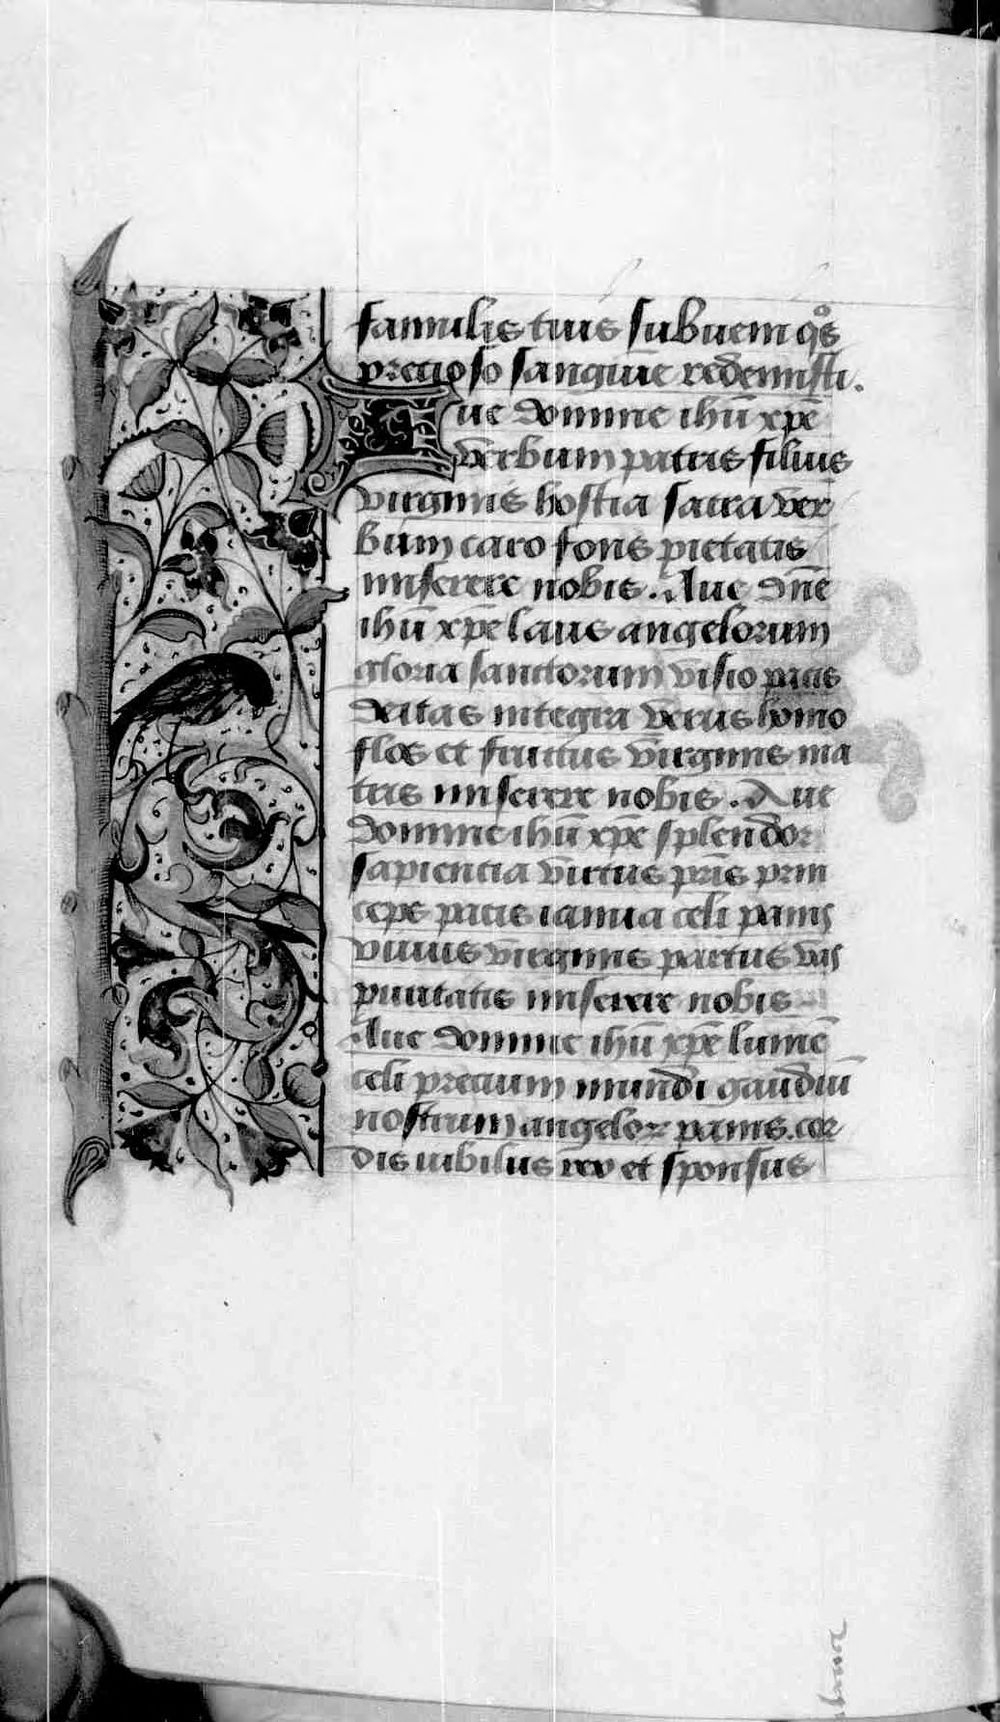 famulis tuis subueni q̄s
precioso sanguīe redemisti.
Aue domine ihū xp̄e
verbum patris filius
virginis hostia sacra ver
bum caro fons pietatis
miserere nobis. Aue dn̄e
ihū xp̄e laus angelorum
gloria sanctorum visio pacis
deitas integra verus homo
flos et fructus virginis ma
tris miserere nobis. Aue
domine ihū xp̄e splendor
sapientia virtus pr̄is prin
ceps pacis ianua celi panis
viuus virginis partus vas
puritatis miserere nobis
Aue domine ihū xp̄e lumē
celi precium mundi gaudiū
nostrum angeloꝝ panis. cor
dis iubilus rex et sponsus